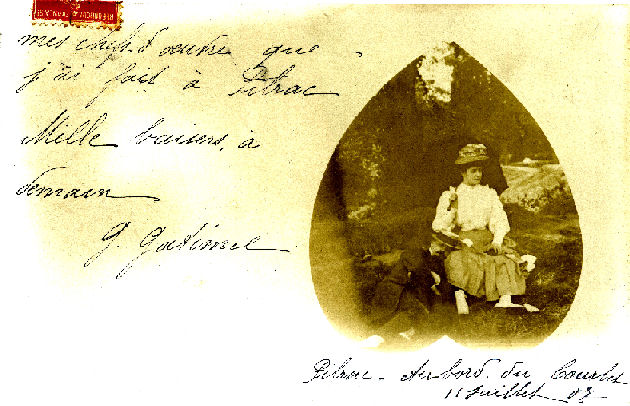 mes chefs-d'œuvre que
j'ai fait à Pelrac
Mille baisers, à
demain
G. Gatimel
Pelrac - Au bord du
11 Juillet 02